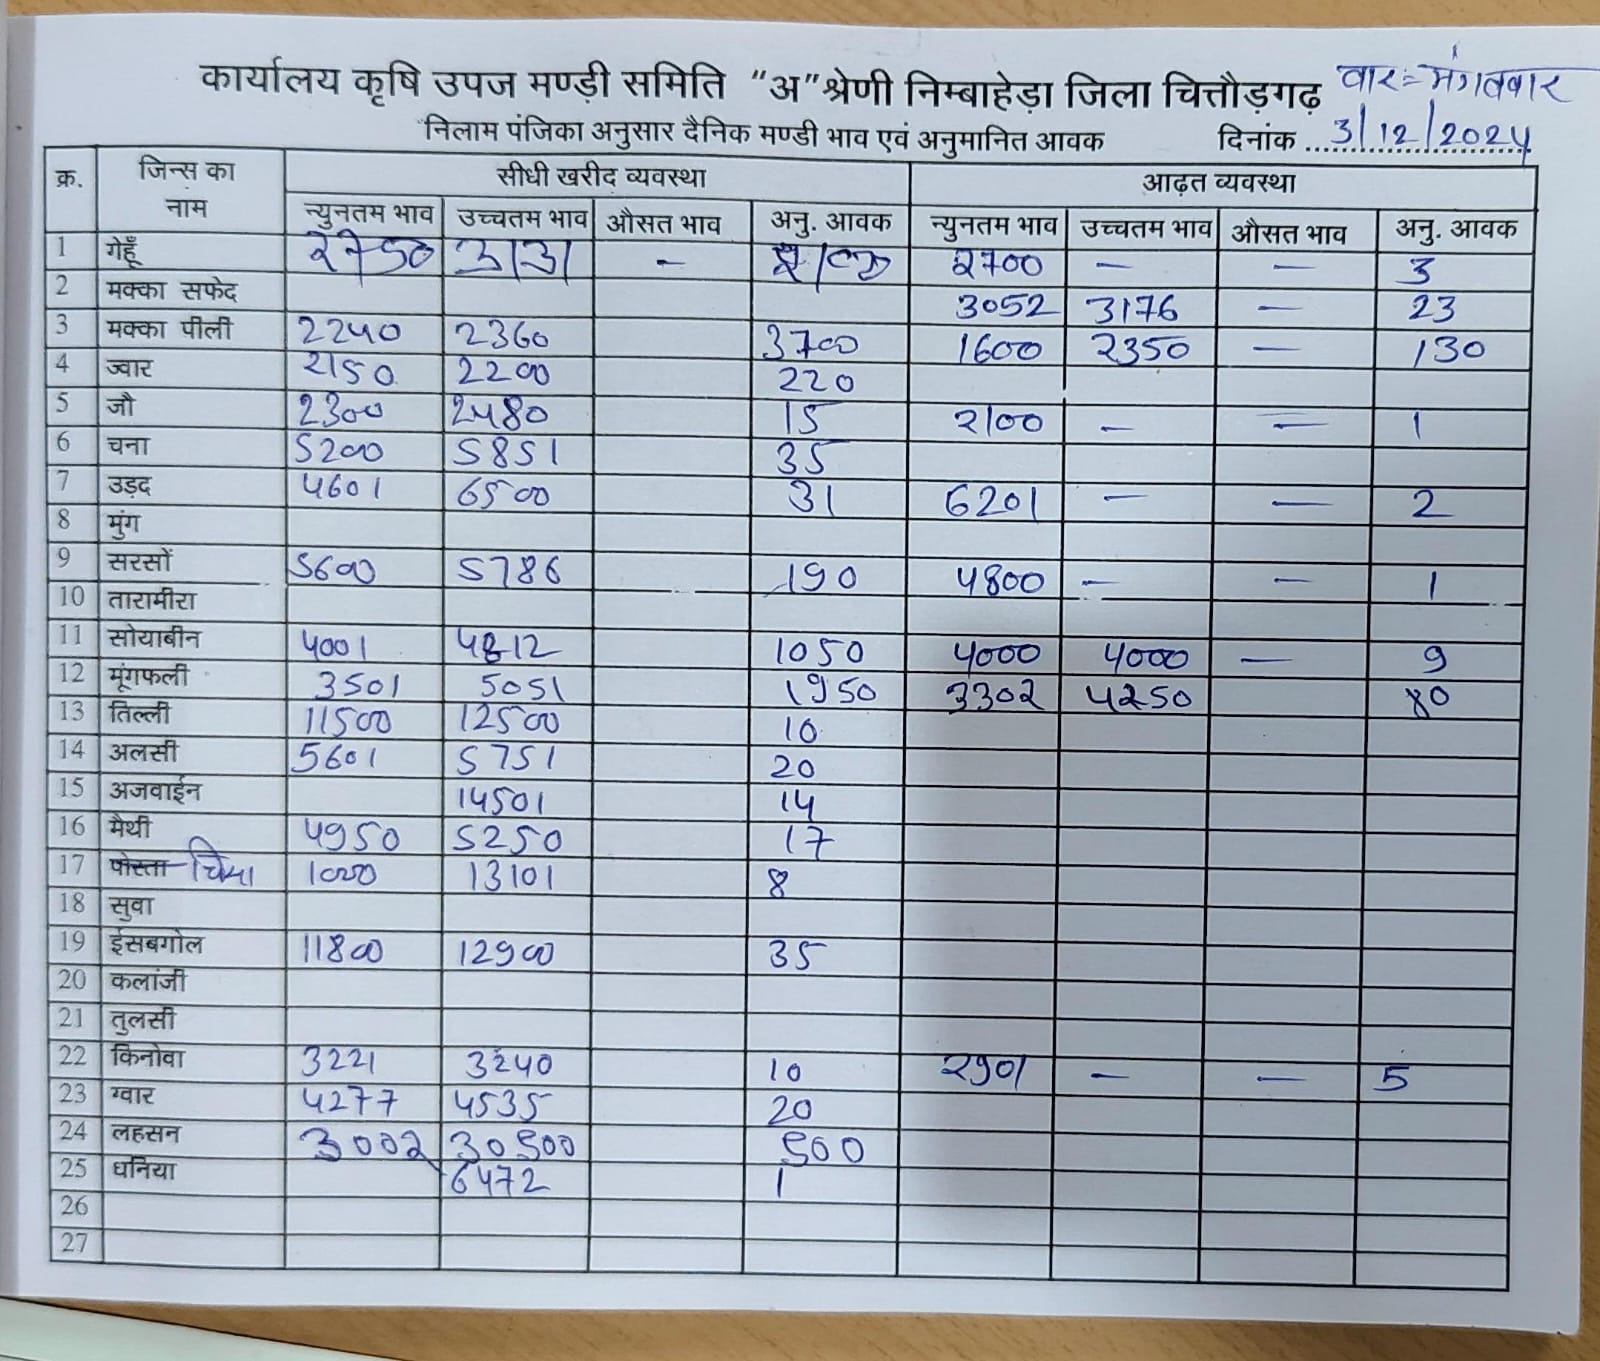 कार्यालय कृषि उपज मण्ड़ी समिति "अ" श्रेणी निम्बाहेड़ा जिला चित्तौड़गढ़ वार:- मंगलवार
निलाम पंजिका अनुसार दैनिक मण्डी भाव एवं अनुमानित आवक दिनांक 3/12/2024
क्र. जिन्स का नाम सीधी खरीद व्यवस्था आढ़त व्यवस्था
न्युनतम भाव उच्चतम भाव औसत भाव अनु. आवक न्युनतम भाव उच्चतम भाव औसत भाव अनु. आवक
1 गेहूँ 2750 3131 - 2700 - - 3
2 मक्का सफेद 3052 3176 - 23
3 मक्का पीली 2240 2360 3700 1600 2350 - 130
4 ज्वार 2150 2200 220
5 जौ 2300 2480 15 2100 - - 1
6 चना 5200 5851 35
7 उड़द 4601 6500 31 6201 - - 2
8 मुंग
9 सरसों 5600 5786 190 4800 - - 1
10 तारामीरा
11 सोयाबीन 4001 4812 1050 4000 4000 - 9
12 मूंगफली 3501 5051 1950 3302 4250 80
13 तिल्ली 11500 12500 10
14 अलसी 5601 5751 20
15 अजवाईन 14501 14
16 मैथी 4950 5250 17
17 पोस्ता चिया 1000 13101 8
18 सुवा
19 ईसबगोल 11800 12900 35
20 कलांजी
21 तुलसी
22 किनोवा 3221 3240 10 2901 - - 5
23 ग्वार 4277 4535 20
24 लहसन 3002 30500 500
25 धनिया 6472 1
26
27